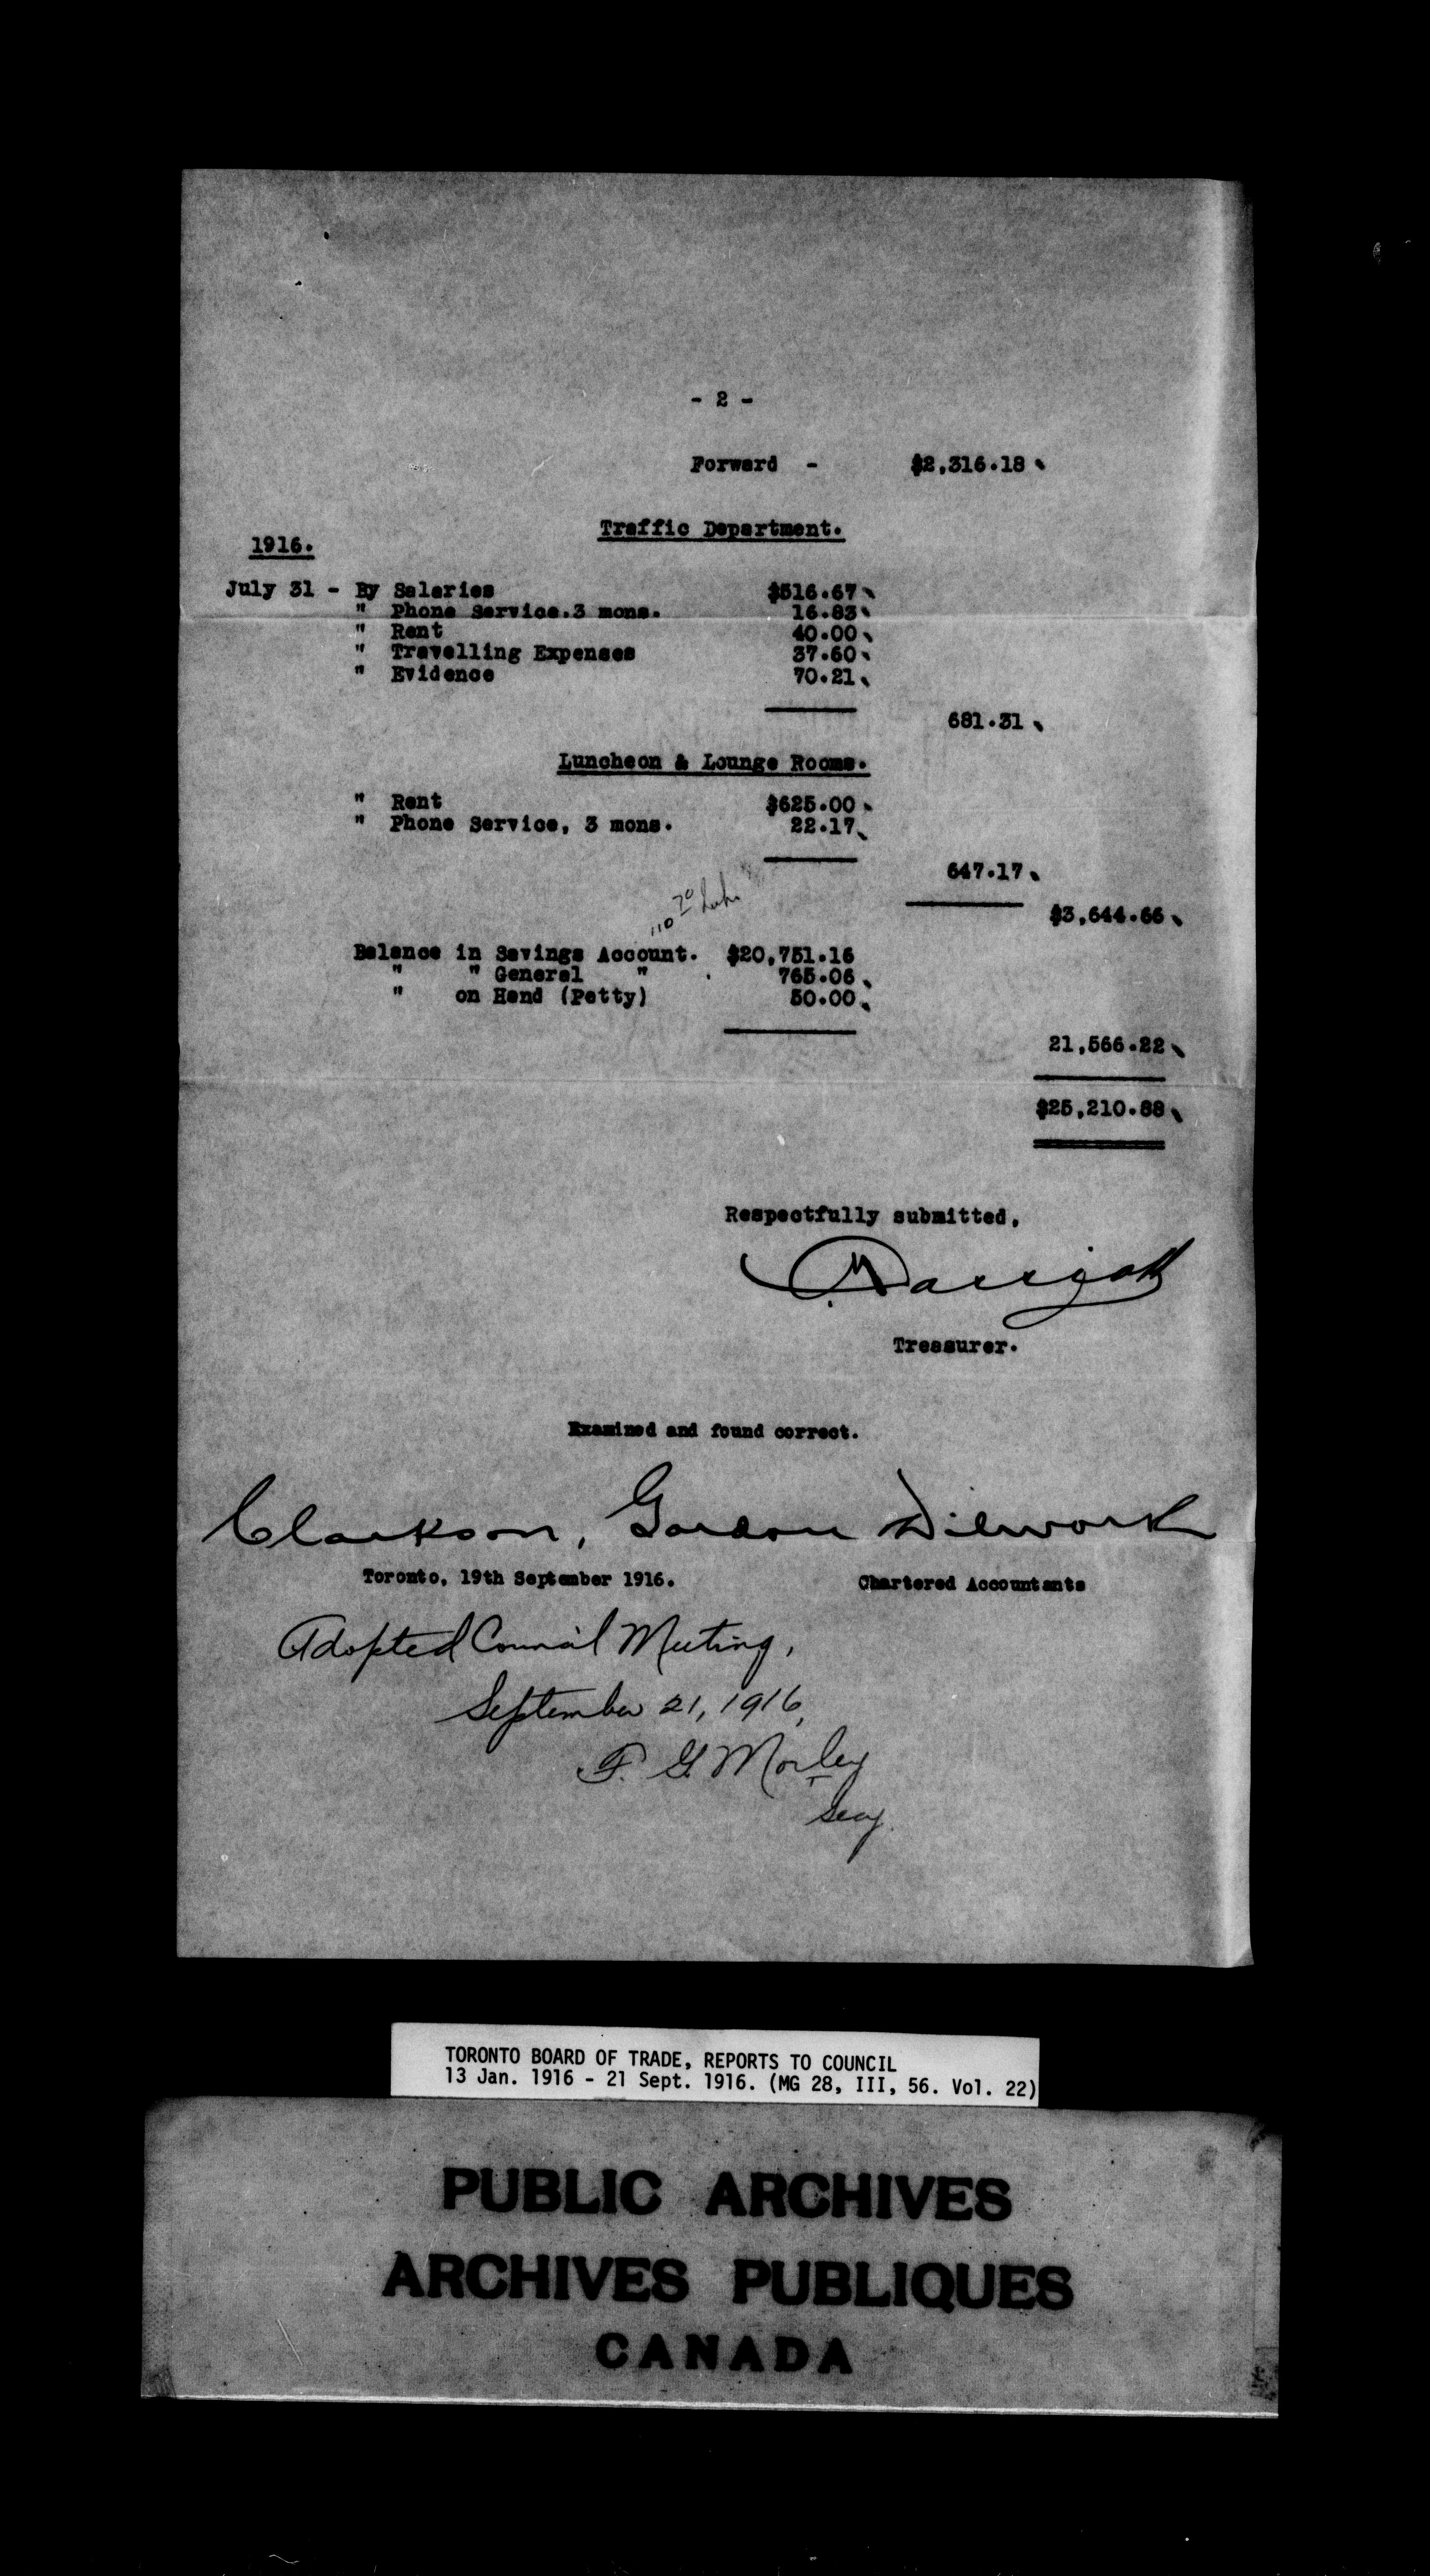 - 2 -
Forward - $2,316.18
Traffic Department.
1916.
July 31 - By Salaries $516.67
" Phone Service.3 mons. 16.83
" Rent 40.00
" Travelling Expenses 37.60
" Evidence 70.21
681.31
Luncheon & Lounge Rooms.
" Rent $625.00
" Phone Service, 3 mons. 22.17
647.17
$3,644.66
Balance in Savings Account. $20,751.16
" " General " . 765.06
" on Hand (Petty) 50.00
21,566.22
$25,210.88
Respectfully submitted,
Treasurer.
Examined and found correct.
Clarkson, Gordon Dilworth
Toronto, 19th September 1916. Chartered Accountants
Adopted Council Meeting,
September 21, 1916,
F. G. Morley
Secy.
TORONTO BOARD OF TRADE, REPORTS TO COUNCIL
13 Jan. 1916 - 21 Sept. 1916. (MG 28, III, 56. Vol. 22)
PUBLIC ARCHIVES
ARCHIVES PUBLIQUES
CANADA